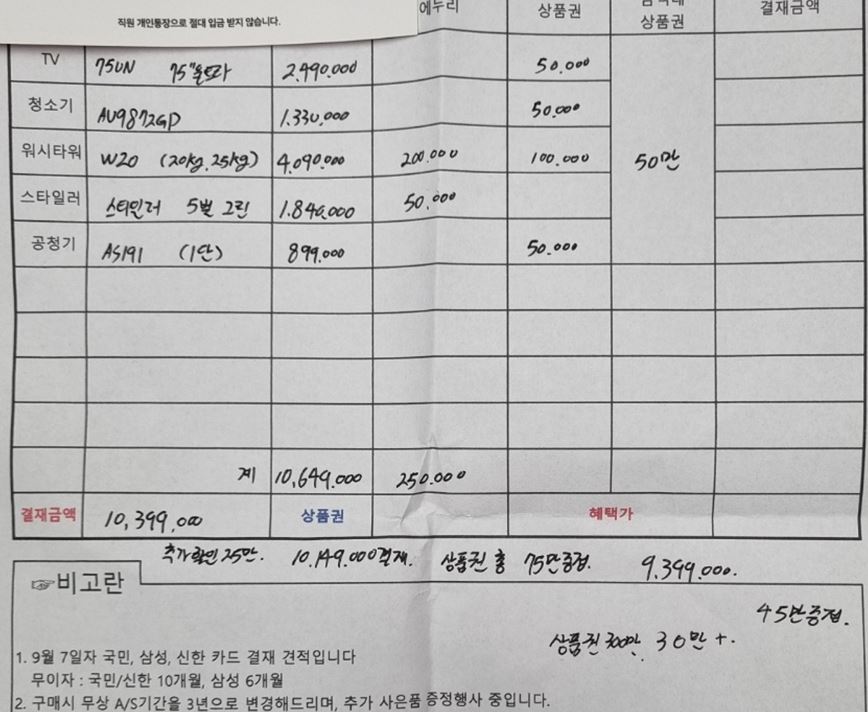 직원 개인통장으로 절대 입금 받지 않습니다.
에누리 상품권 상품권 결재금액
TV 75UN 75"울트라 2.990.000 50.000
청소기 AU9872GD 1.330.000 50.000
워시타워 W20 (20kg.25kg) 4.090.000 200.000 100.000 50만
스타일러 스타일러 5벌 그린 1.840.000 50.000
공청기 AS191 (1단) 899.000 50.000
계 10,649.000 250.000
결재금액 10,399,000 상품권 혜택가
추가할인 25만. 10.149.000결재. 상품권 총 75만증정. 9.399.000.
☞비고란
45만증정.
상품권 30만 +.
1. 9월 7일자 국민, 삼성, 신한 카드 결재 견적입니다
무이자 : 국민/신한 10개월, 삼성 6개월
2. 구매시 무상 A/S기간을 3년으로 변경해드리며, 추가 사은품 증정행사 중입니다.